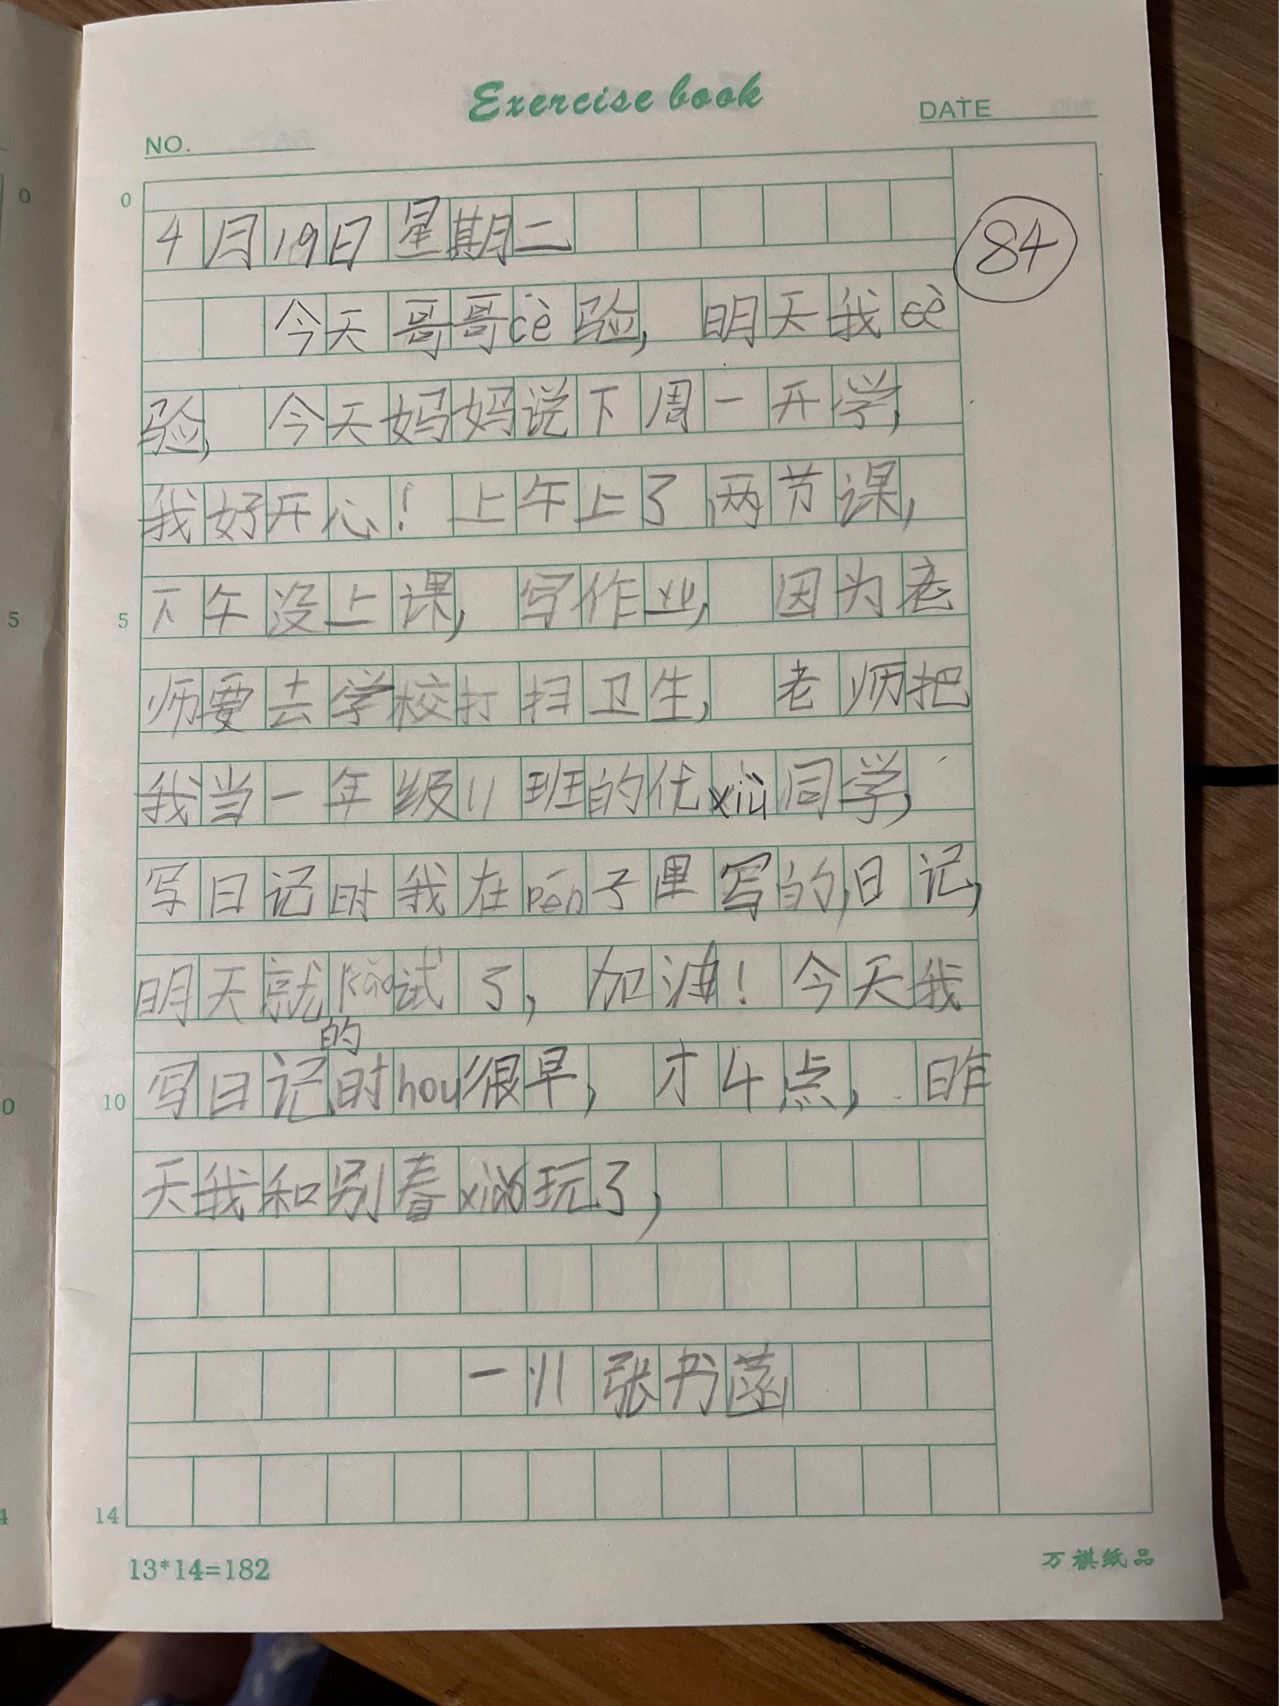 Exercise book
NO.
DATE
0
0
4月19日星期二
84
今天哥哥cè验,明天我cè
验,今天妈妈说下周一开学,
我好开心!上午上了两节课,
5
5
下午没上课,写作业,因为老
师要去学校打扫卫生,老师把
我当一年级11班的优xiù同学,
写日记时我在pén子里写的,日记,
明天就kǎo试了,加油!今天我
的
0
10
写日记时hou很早,才4点,昨
天我和别春xiǎo玩了,
一11张书菡
4
14
13*14=182
万祺纸品